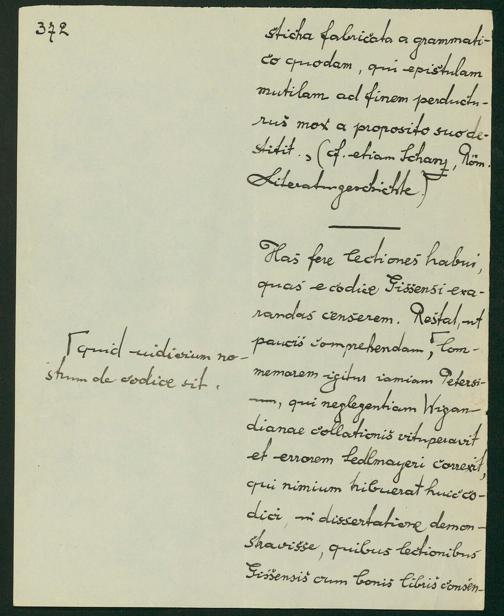 372
sticha fabricata a grammati-
co quodam, qui epistulam
mutilam ad finem perductu-
rus mox a proposito suo de-
stitit., (cf. etiam Schanz, Röm.
Literaturgeschichte.)
Has fere lectiones habui,
quas e codice Gissensi exa-
randas censerem. Restat, ut
paucis comprehendam, ⌈com-
⌈quid iudicium no-
strum de codice sit.
memorem igitur iam Petersi-
, qui neglegentiam Wigan-
dianae collationis vituperavit
et errorem Sedlmayeri correxit,
qui nimium tribuerat huic co-
dici, in dissertatione demon-
stravisse, quibus lectionibus
Gissensis cum bonis libris consen-